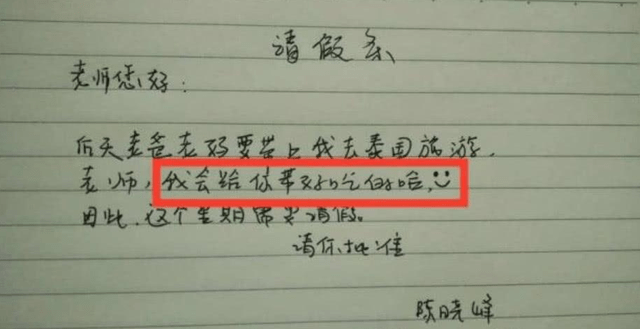 请假条
老师您好:
后天老爸老妈要带上我去泰国旅游.
老师,我会给你带好吃的哈,
因此,这个星期需要请假。
请你批准
陈晓峰